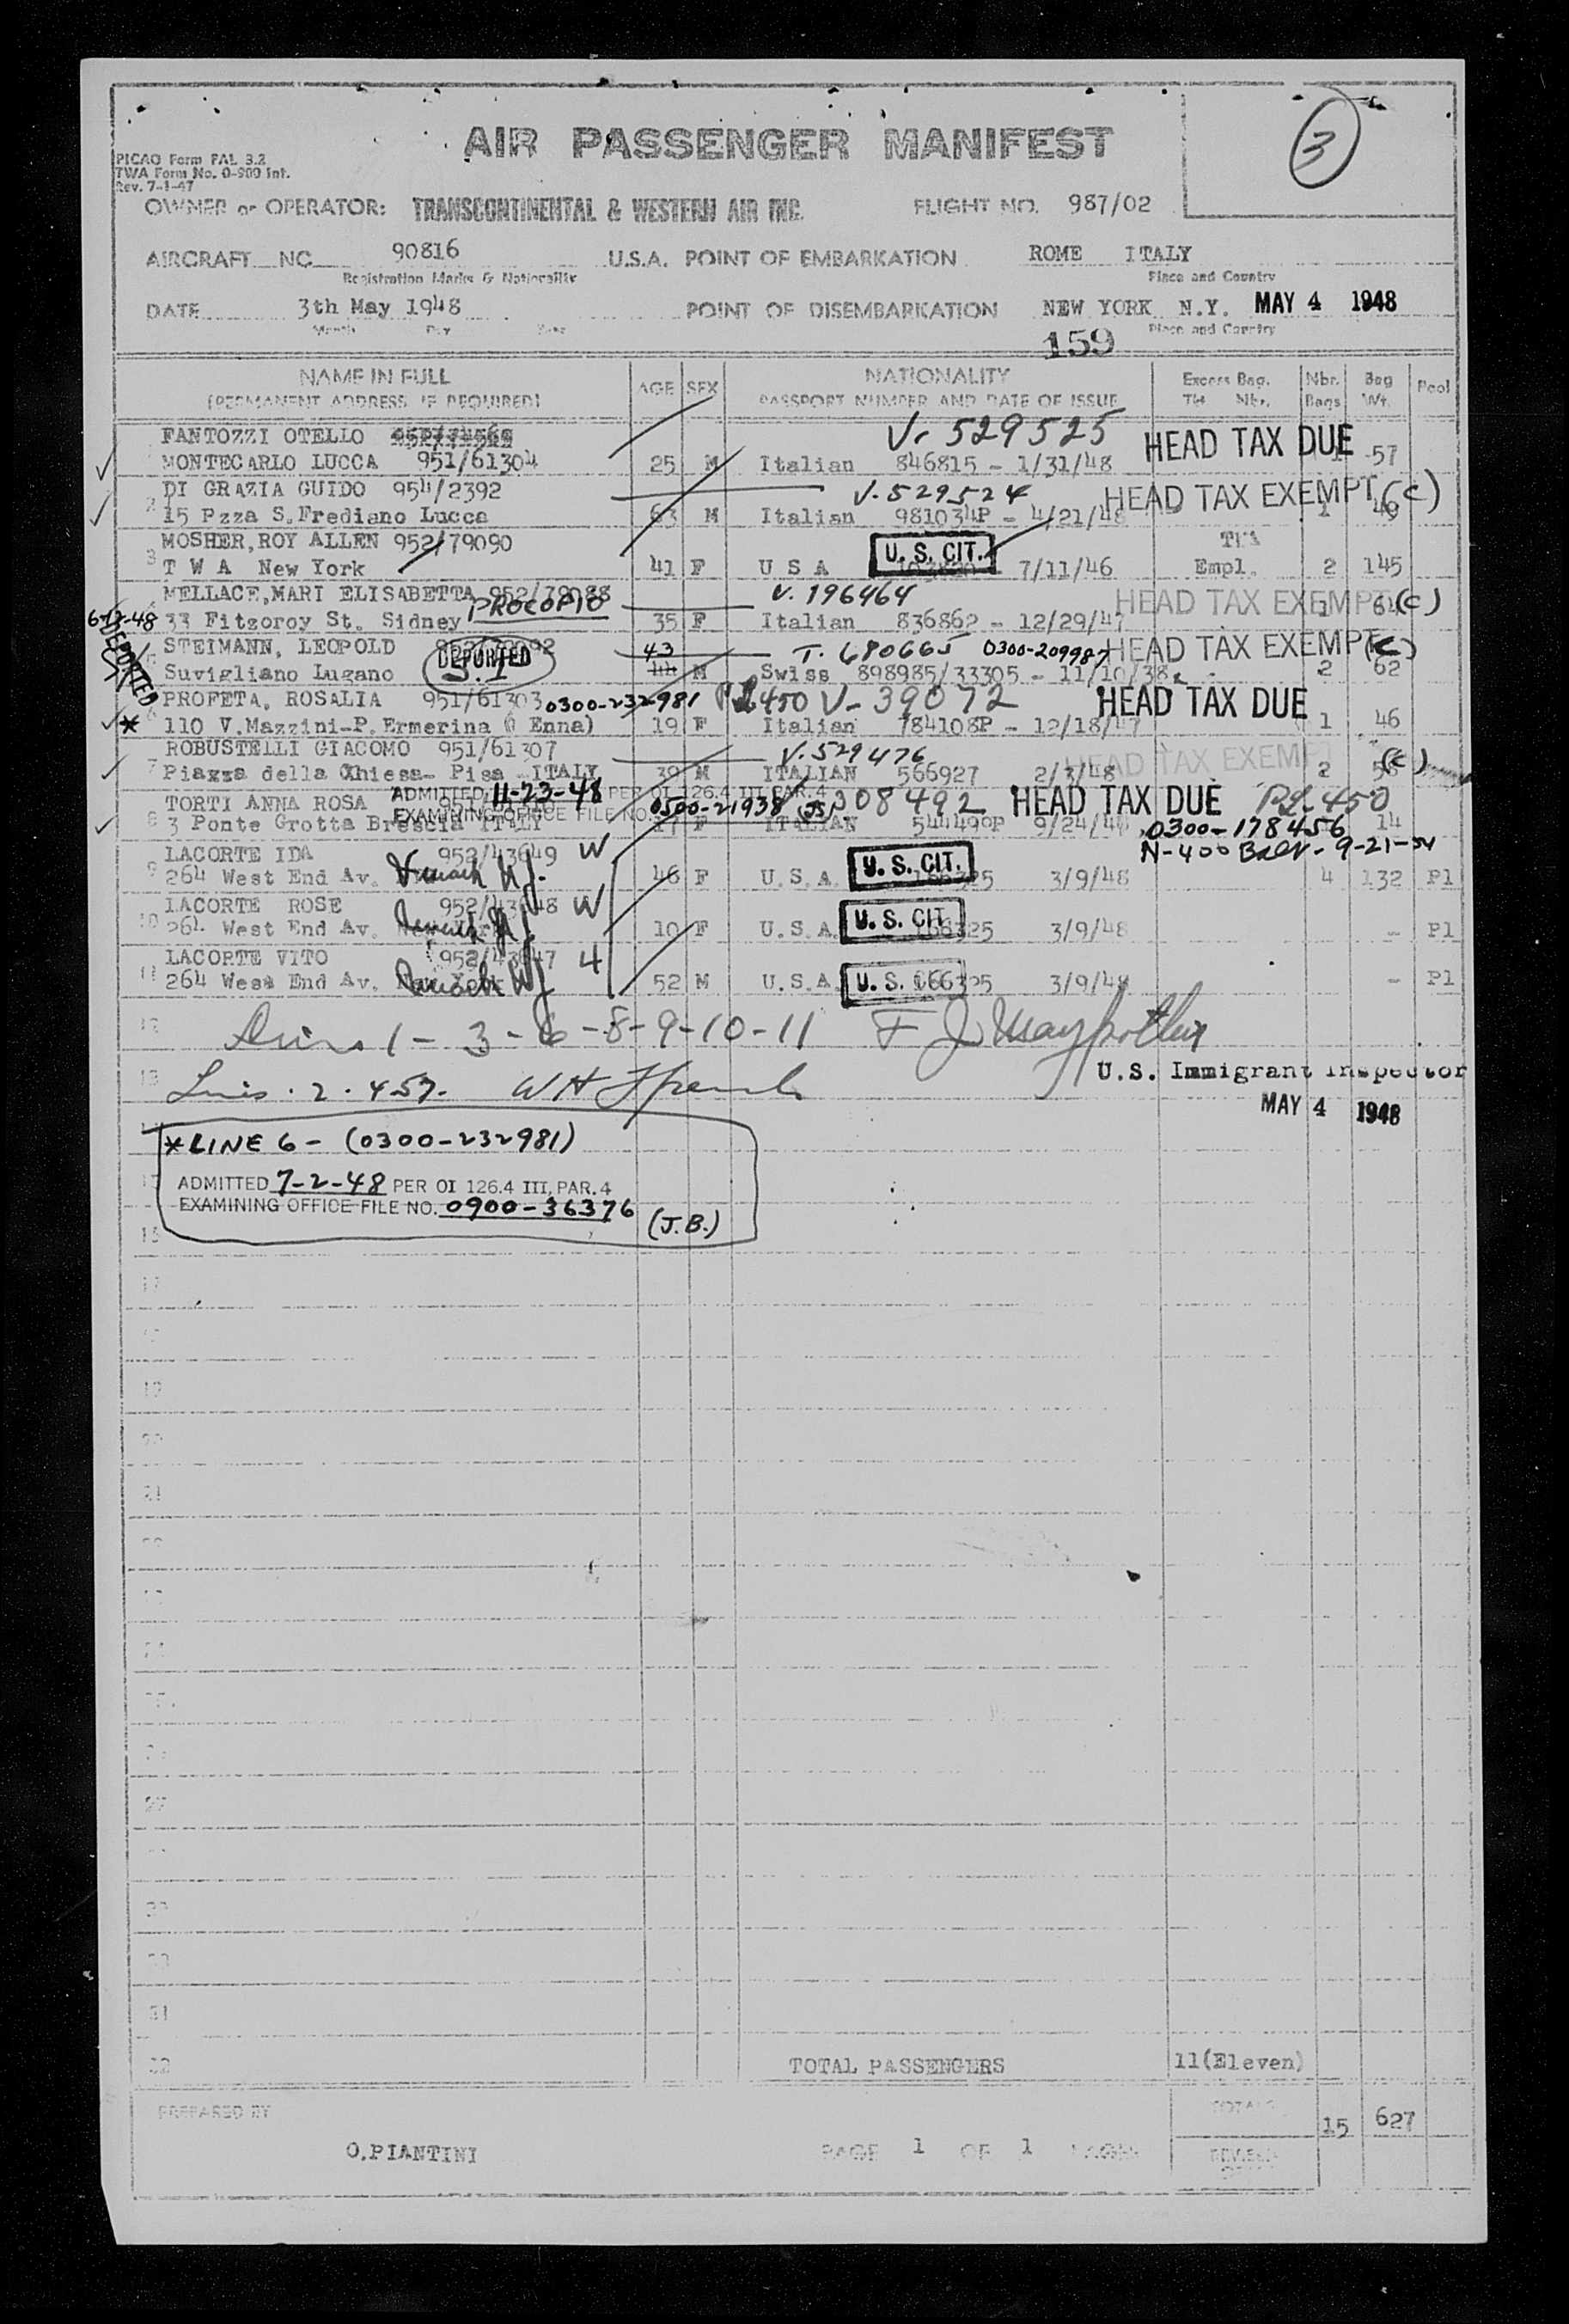 3
AIR PASSENGER MANIFEST
PICAO Form FAL 3.2
TWA Form No. 0-900 Int.
Rev. 7-1-47
OWNER or OPERATOR: TRANSCONTINENTAL & WESTERN AIR INC. FLIGHT NO. 987/02
AIRCRAFT NC 90816 U.S.A. POINT OF EMBARKATION ROME ITALY
Registration Marks & Nationality Place and Country
DATE 3th May 1948 POINT OF DISEMBARKATION NEW YORK N.Y. MAY 4 1948
Month Day Year Place and Country
159
NAME IN FULL AGE SEX NATIONALITY Excess Bag. Nbr. Bag Pool
(PERMANENT ADDRESS IF REQUIRED) PASSPORT NUMBER AND DATE OF ISSUE Tkt Nbr. Bags Wt.
FANTOZZI OTELLO V. 529525 HEAD TAX DUE
MONTECARLO LUCCA 951/61304 25 M Italian 846815 - 1/31/48 1 57
2 DI GRAZIA GUIDO 954/2392 V. 529524 HEAD TAX EXEMPT (C)
15 Pzza S.Frediano Lucca 63 M Italian 981034P - 4/21/48 1 49
3 MOSHER,ROY ALLEN 952/79090 U. S. CIT. TWA
T W A New York 41 F U S A 7/11/46 Empl. 2 145
MELLACE,MARI ELISABETTA 952/79088 PROCOPIO V. 196464 HEAD TAX EXEMPT (C)
33 Fitzoroy St. Sidney 35 F Italian 836862 - 12/29/47 1 64
6-12-48 DEPORTED
STEIMANN, LEOPOLD DEPORTED S.I 43 T. 680665 0300-209987 HEAD TAX EXEMPT (C)
Suvigliano Lugano 44 M Swiss 898985/33305 - 11/10/38 2 62
PROFETA, ROSALIA 951/61303 0300-232981 P.L 450 V- 39072 HEAD TAX DUE
* 6 110 V.Mazzini-P.Ermerina ( Enna) 19 F Italian 784108P - 12/18/47 1 46
7 ROBUSTELLI GIACOMO 951/61307 V. 529476 HEAD TAX EXEMPT (C)
Piazza della Chiesa- Pisa ITALY 39 M ITALIAN 566927 2/3/48 2 58
ADMITTED 11-23-48 PER OI 126.4 III PAR.4
EXAMINING OFFICE FILE NO. 0500-21938 (JS)
8 TORTI ANNA ROSA 308492 HEAD TAX DUE P.L. 450
3 Ponte Grotta Brescia ITALY 17 F ITALIAN 544490P 9/24/4 14
0300-178456
N-400 9-21-54
9 LACORTE IDA 952/43649 W U. S. CIT.
264 West End Av. Newark N.J. 46 F U.S.A. 3/9/48 4 132 Pl
10 LACORTE ROSE 952/43648 W U. S. CIT.
264 West End Av. Newark N.J. 10 F U.S.A. 3/9/48 - Pl
11 LACORTE VITO 952/43647 H U. S.
264 West End Av. Newark N.J. 52 M U.S.A. 166325 3/9/48 - Pl
12 1 - 3 - 6 - 8 - 9 - 10 - 11 F J
13 U.S. Immigrant Inspector
MAY 4 1948
Lines . 2 . 4 5 7. W H
* LINE 6 - (0300-232981)
ADMITTED 7-2-48 PER OI 126.4 III, PAR. 4
EXAMINING OFFICE FILE NO. 0900-36376 (J.B.)
17
19
21
27
31
TOTAL PASSENGERS 11(Eleven)
PREPARED BY TOTALS 15 627
O.PIANTINI PAGE 1 OF 1 PAGES